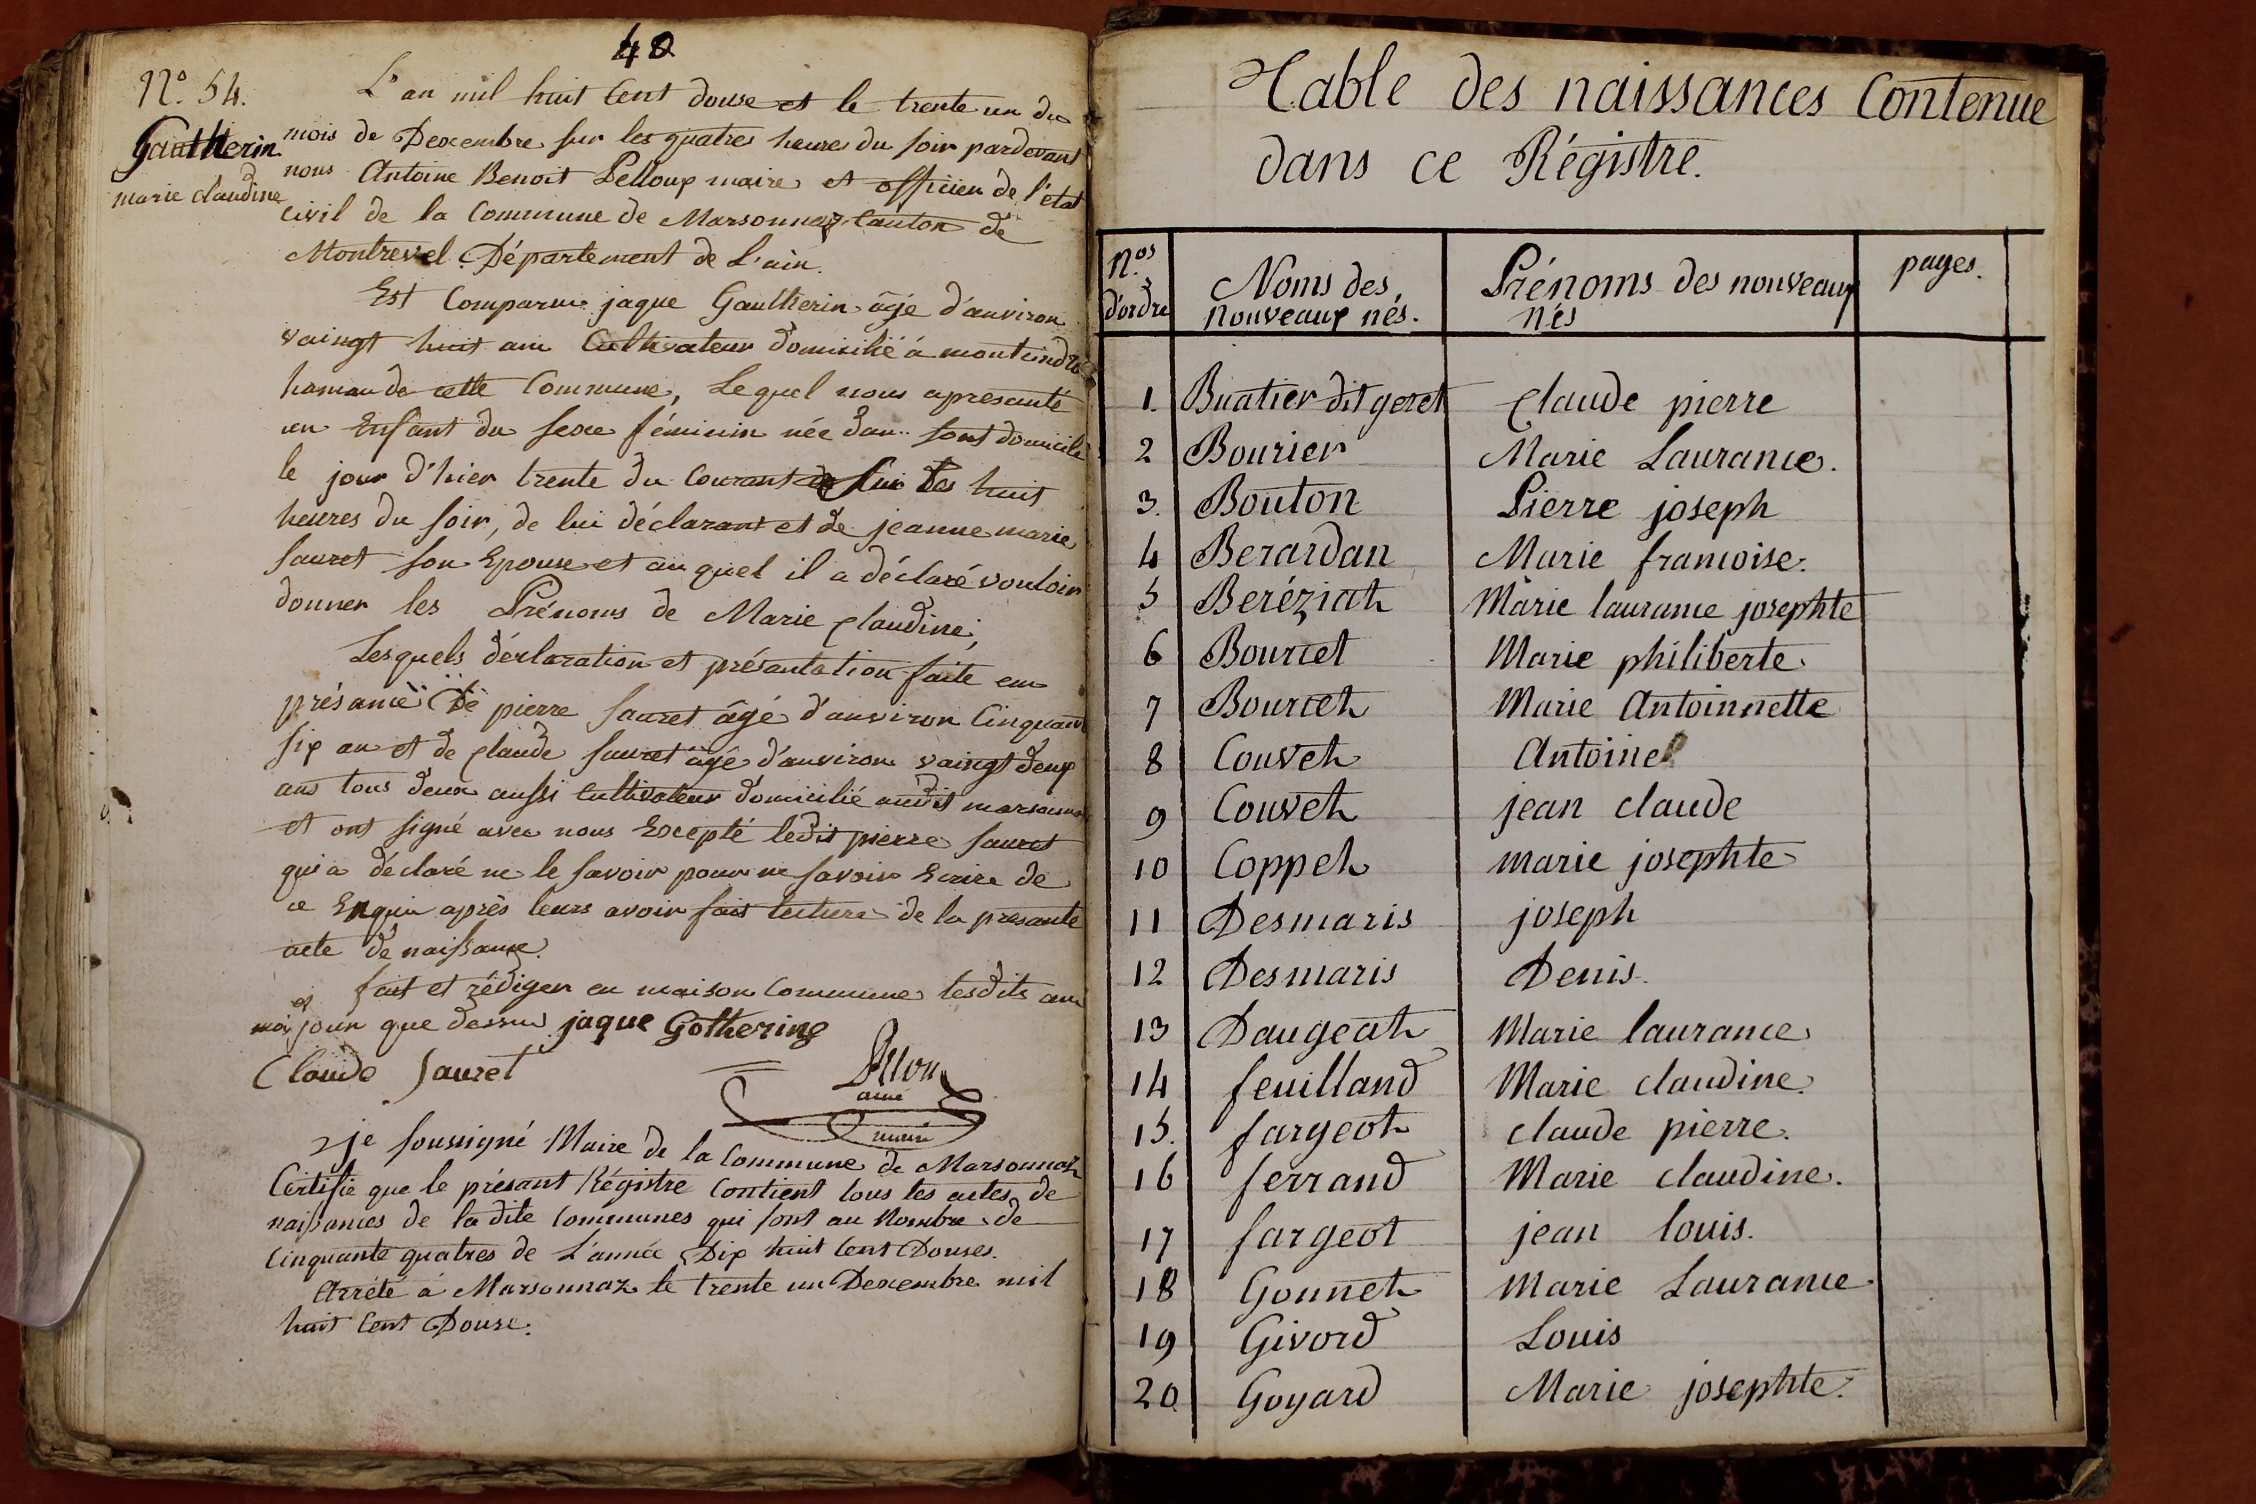 40
N.° 54.
Gautherin
marie claudine
L'an mil huit Cent douse et le trente un du
mois de Dexembre sur les quatres heures du soir pardevant
nous Antoine Benoit Pelloux maire et officier de l'état
civil de la Commune de Marsonnaz Canton de
Montrevel Département de L'ain.
Est Comparue jaque Gautherin âgé d'auviron
vaingt huit ans Cultivateur domicilié à
hamau de cette Commune, Lequel nous apresanté
un Enfant du sexe féminin née dans sont domicile
le jour d'hier trente du Courant sur les huit
heures du soir, de lui déclarant et de jeanne marie
sauret son Epouse et au quel il a déclaré vouloir
donner les Prénoms de Marie Claudine;
Lesquels déclaration et présantation faite en
présance De pierre sauret âgé d'auviron Cinquante
six an et de Claude sauret âgé d'auviron vaingt deux
ans tous deux aussi Cultivateur domicilié audit marsonna
et ont signé avec nous Excepté ledit pierre sauret
qui a déclaré ne le savoir pour ne savoir Ecrire de
ce Enquis après leurs avoir fait lecture de la présante
acte de naissance.
fait et rédiger en maison Commune lesdits an
mois et jour que dessus jaque Gothering
Claude Sauret
maire
je soussigné Maire de la Commune de Marsonnaz
Certifie que le présant Régistre Contient tous les actes de
naissances de la dite Communes qui sont au Nombre de
Cinquante quatres de L'année Dix huit Cent Douses.
Arrété à Marsonnaz le trente un Dexembre mil
huit Cent Douse.
Table des naissances Contenue
dans ce Régistre.
N.os d'ordre | Noms des nouveaux nés. | Prénoms des nouveaux nés | pages.
1. Buatier dit geret Claude pierre
2 Bourier Marie Laurance.
3. Bouton Pierre joseph
4 Berardan Marie francoise.
5 Beréziat Marie laurance josephte
6 Bourcet Marie philiberte.
7 Bourcet Marie Antoinnette
8 Couvet Antoine
9 Couvet jean claude
10 Coppet marie josephte
11 Desmaris joseph
12 Desmaris Denis.
13 Daugeat Marie laurance
14 feuilland Marie claudine.
15. fargeot claude pierre.
16 ferrand Marie claudine.
17 fargeot jean louis.
18 Gonnet Marie Laurance
19 Givord Louis
20 Goyard Marie josephte.